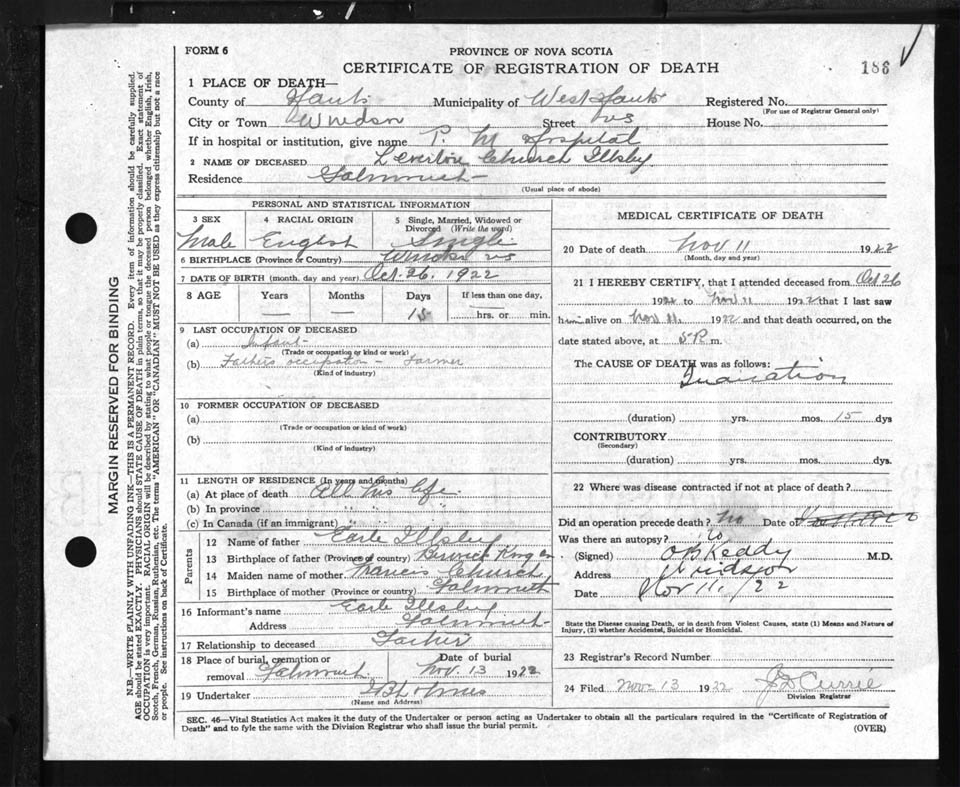 FORM 6
PROVINCE OF NOVA SCOTIA
CERTIFICATE OF REGISTRATION OF DEATH
186
1 PLACE OF DEATH—
County of Hants Municipality of West Hants Registered No.
(For use of Registrar General only)
City or Town Windsor Street NS House No.
If in hospital or institution, give name P. M. Hospital
2 NAME OF DECEASED Leverton Church Illsley
Residence Falmouth
(Usual place of abode)
PERSONAL AND STATISTICAL INFORMATION
3 SEX 4 RACIAL ORIGIN 5 Single, Married, Widowed or Divorced (Write the word)
Male English Single
6 BIRTHPLACE (Province or Country) Windsor NS
7 DATE OF BIRTH (month, day and year) Oct. 26, 1922
8 AGE Years Months Days If less than one day,
— — 15 hrs. or min.
9 LAST OCCUPATION OF DECEASED
(a) Infant
(Trade or occupation or kind of work)
(b) Fathers occupation - Farmer
(Kind of industry)
10 FORMER OCCUPATION OF DECEASED
(a)
(Trade or occupation or kind of work)
(b)
(Kind of industry)
11 LENGTH OF RESIDENCE (In years and months)
(a) At place of death All his life
(b) In province " " "
(c) In Canada (if an immigrant) " " "
Parents
12 Name of father Earle Illsley
13 Birthplace of father (Province or country) Berwick Kings Co
14 Maiden name of mother Francis Church
15 Birthplace of mother (Province or country) Falmouth
16 Informant's name Earle Illsley
Address Falmouth
17 Relationship to deceased Father
18 Place of burial, cremation or removal Falmouth Date of burial Nov 13 1922
19 Undertaker Holmes
(Name and Address)
MEDICAL CERTIFICATE OF DEATH
20 Date of death Nov 11 1922
(Month, day and year)
21 I HEREBY CERTIFY, that I attended deceased from Oct 26
1922 to Nov 11 1922 that I last saw
him alive on Nov 11 1922 and that death occurred, on the
date stated above, at 5 P. m.
The CAUSE OF DEATH was as follows:
Inanation
(duration) yrs. mos. 15 dys
CONTRIBUTORY
(Secondary)
(duration) yrs. mos. dys.
22 Where was disease contracted if not at place of death?
Did an operation precede death? No Date of
Was there an autopsy?
(Signed) O B Keddy M.D.
Address Windsor
Date Nov 11, /22
State the Disease causing Death, or in death from Violent Causes, state (1) Means and Nature of
Injury, (2) whether Accidental, Suicidal or Homicidal.
23 Registrar's Record Number
24 Filed Nov 13 1922 J D Currie
Division Registrar
SEC. 46—Vital Statistics Act makes it the duty of the Undertaker or person acting as Undertaker to obtain all the particulars required in the "Certificate of Registration of
Death" and to fyle the same with the Division Registrar who shall issue the burial permit.
(OVER)
MARGIN RESERVED FOR BINDING
N.B.—WRITE PLAINLY WITH UNFADING INK—THIS IS A PERMANENT RECORD. Every item of information should be carefully supplied.
AGE should be stated EXACTLY. PHYSICIANS should STATE CAUSE OF DEATH in plain terms, so that it may be properly classified. Exact statement of
OCCUPATION is very important. RACIAL ORIGIN will be described by stating to what people or tongue the deceased person belonged whether English, Irish,
Scotch, French, German, Russian, Ruthenian, etc. The terms "AMERICAN" OR "CANADIAN" MUST NOT BE USED as they express citizenship but not a race
or people. See instructions on back of Certificate.